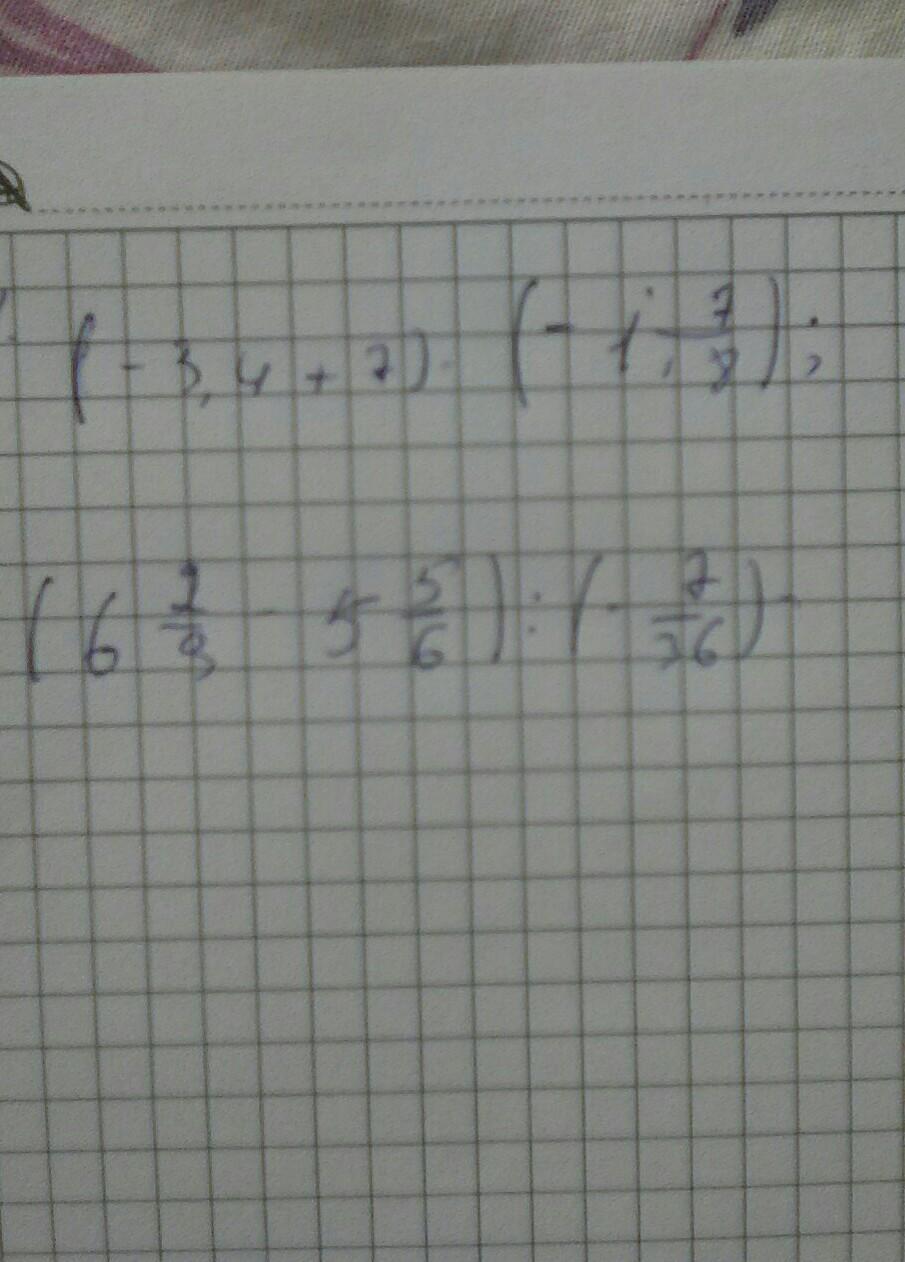 (-3,4 + 7) · (-1 7/8);
(6 2/9 - 5 5/6) : (-7/36)